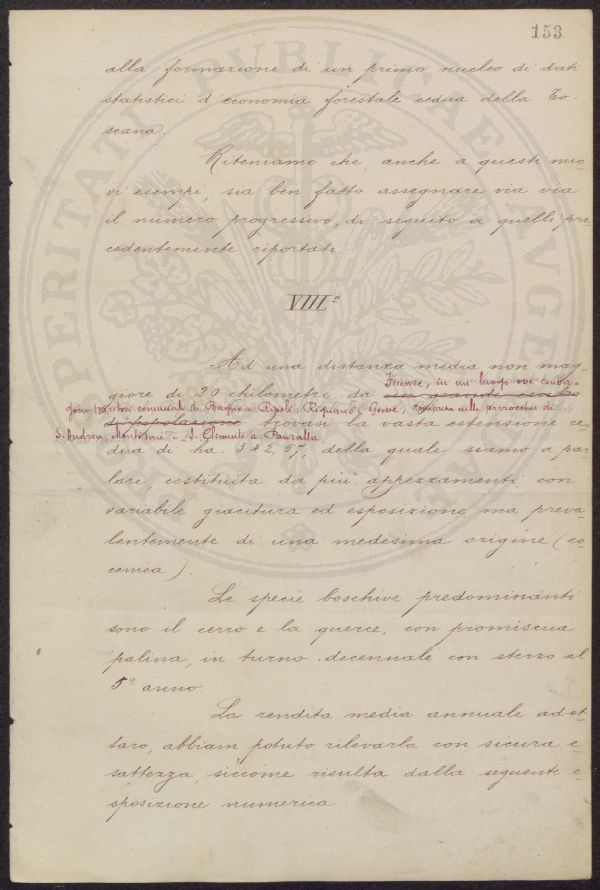 153
alla formazione di un primo nucleo di dati
statistici d'economia forestale cedua della To-
scana.
Riteniamo che, anche a questi nuo-
vi esempi, sia ben fatto assegnare via via
il numero progressivo, di seguito a quelli pre-
cedentemente riportati.
VIIIº
Ad una distanza media non mag-
Firenze, in un luogo ove conver-
giore di 20 chilometri da un grande centro
gono territori comunali di Bagno a Ripoli, Rignano, Greve, compresa nelle parrocchie di
di popolazione trovasi la vasta estensione ce-
S. Andrea, Montisoni e S. Clemente a Panzalla
dua di ha. 342,57, della quale siamo a par-
lare, costituita da più appezzamenti con
variabile giacitura ed esposizione ma preva-
lentemente di una medesima origine (eo-
cenica).
Le specie boschive predominanti
sono il cerro e la querce, con promiscua
palina, in turno decennale con sterzo al
5º anno.
La rendita media annuale ad et-
taro, abbiam potuto rilevarla con sicura e-
sattezza, siccome risulta dalla seguente e-
sposizione numerica: